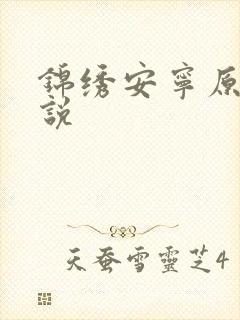 錦绣安寧原
説
天蚕雪靈芝4